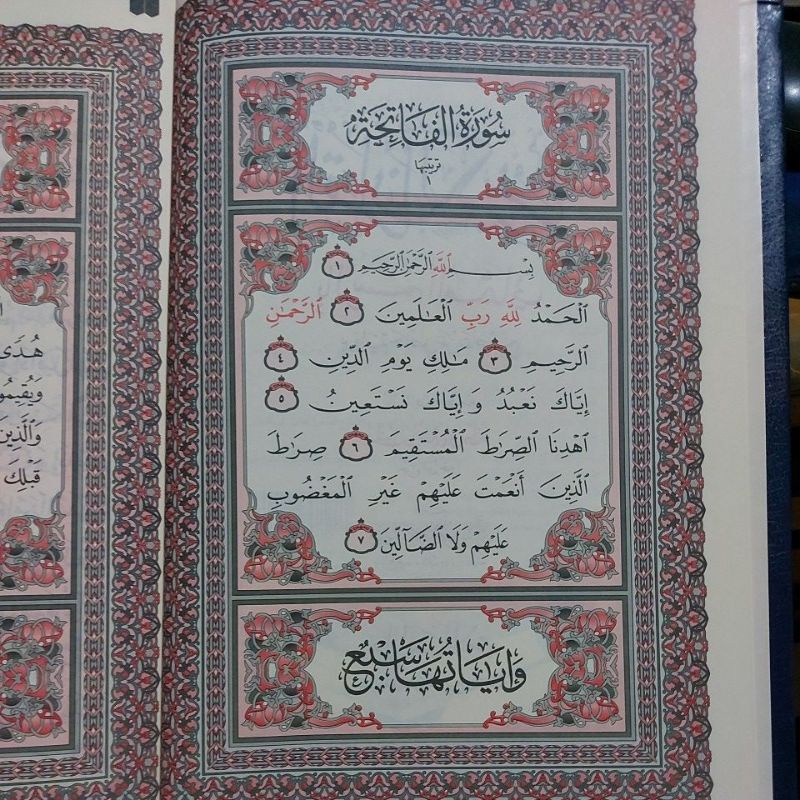 سُورَةُ الفَاتِحَةِ
ترتيبها
١
بِسْمِ اللَّهِ الرَّحْمَٰنِ الرَّحِيمِ ١
الْحَمْدُ لِلَّهِ رَبِّ الْعَالَمِينَ ٢ الرَّحْمَٰنِ
الرَّحِيمِ ٣ مَالِكِ يَوْمِ الدِّينِ ٤
إِيَّاكَ نَعْبُدُ وَإِيَّاكَ نَسْتَعِينُ ٥
اهْدِنَا الصِّرَاطَ الْمُسْتَقِيمَ ٦ صِرَاطَ
الَّذِينَ أَنْعَمْتَ عَلَيْهِمْ غَيْرِ الْمَغْضُوبِ
عَلَيْهِمْ وَلَا الضَّالِّينَ ٧
وَآيَاتُهَا سَبْعٌ
هُدًى
وَيُقِيمُو
وَالَّذِينَ
قَبْلِكَ